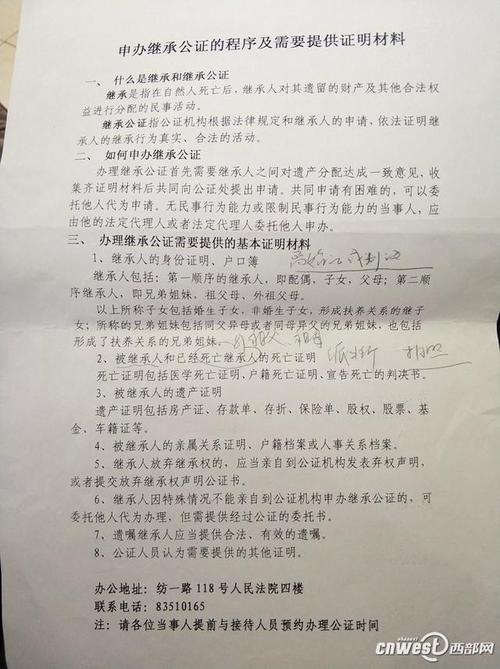 申办继承公证的程序及需要提供证明材料
一、 什么是继承和继承公证
继承是指在自然人死亡后,继承人对其遗留的财产及其他合法权
益进行分配的民事活动。
继承公证指公证机构根据法律规定和继承人的申请,依法证明继
承人的继承行为真实、合法的活动。
二、 如何申办继承公证
办理继承公证首先需要继承人之间对遗产分配达成一致意见,收
集齐证明材料后共同向公证处提出申请。共同申请有困难的,可以委
托他人代为申请。无民事行为能力或限制民事行为能力的当事人,应
由他的法定代理人或者法定代理人委托他人申办。
三、 办理继承公证需要提供的基本证明材料
1、继承人的身份证明、户口簿
继承人包括:第一顺序的继承人,即配偶,子女,父母;第二顺
序继承人,即兄弟姐妹、祖父母、外祖父母。
以上所称子女包括婚生子女,非婚生子女,形成扶养关系的继子
女;所称的兄弟姐妹包括同父异母或者同母异父的兄弟姐妹,也包括
形成了扶养关系的兄弟姐妹。
2、被继承人和已经死亡继承人的死亡证明 派出所
死亡证明包括医学死亡证明,户籍死亡证明,宣告死亡的判决书。
3、被继承人的遗产证明
遗产证明包括房产证、存款单、存折、保险单、股权、股票、基
金、车籍证等。
4、被继承人的亲属关系证明、户籍档案或人事关系档案。
5、继承人放弃继承权的,应当亲自到公证机构发表弃权声明,
或者提交放弃继承权声明公证书。
6、继承人因特殊情况不能亲自到公证机构申办继承公证的,可
委托他人代为办理,但需提供经过公证的委托书。
7、遗嘱继承人应当提供合法、有效的遗嘱。
8、公证人员认为需要提供的其他证明。
办公地址:纺一路118号人民法院四楼
联系电话:83510165
注:请各位当事人提前与接待人员预约办理公证时间
cnwest西部网